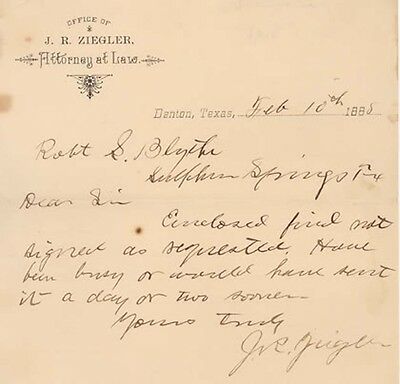 OFFICE OF
J. R. ZIEGLER,
Attorney at Law.
Denton, Texas, Feb 10th 1885
Robt S. Blythe
Sulphur Springs Tx
Dear Sir
Enclosed find not
signed as requested, Have
been busy or would have sent
it a day or two sooner
Yours truly
J. R. Ziegler